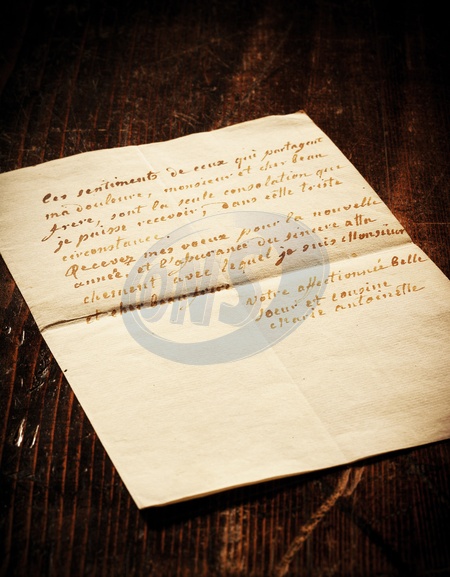 les sentiments de ceux qui partagent
ma douleure, monsieur et cher beau
frere, sont la seule consolation que
je puisse recevoir, dans cette triste
circonstance.
Recevez mes voeux pour la nouvelle
année, et l'assurance du sincere atta
chement avec lequel je suis Monsieur
et
votre affectionnée belle
soeur et cousine
marie antoinette
OWS